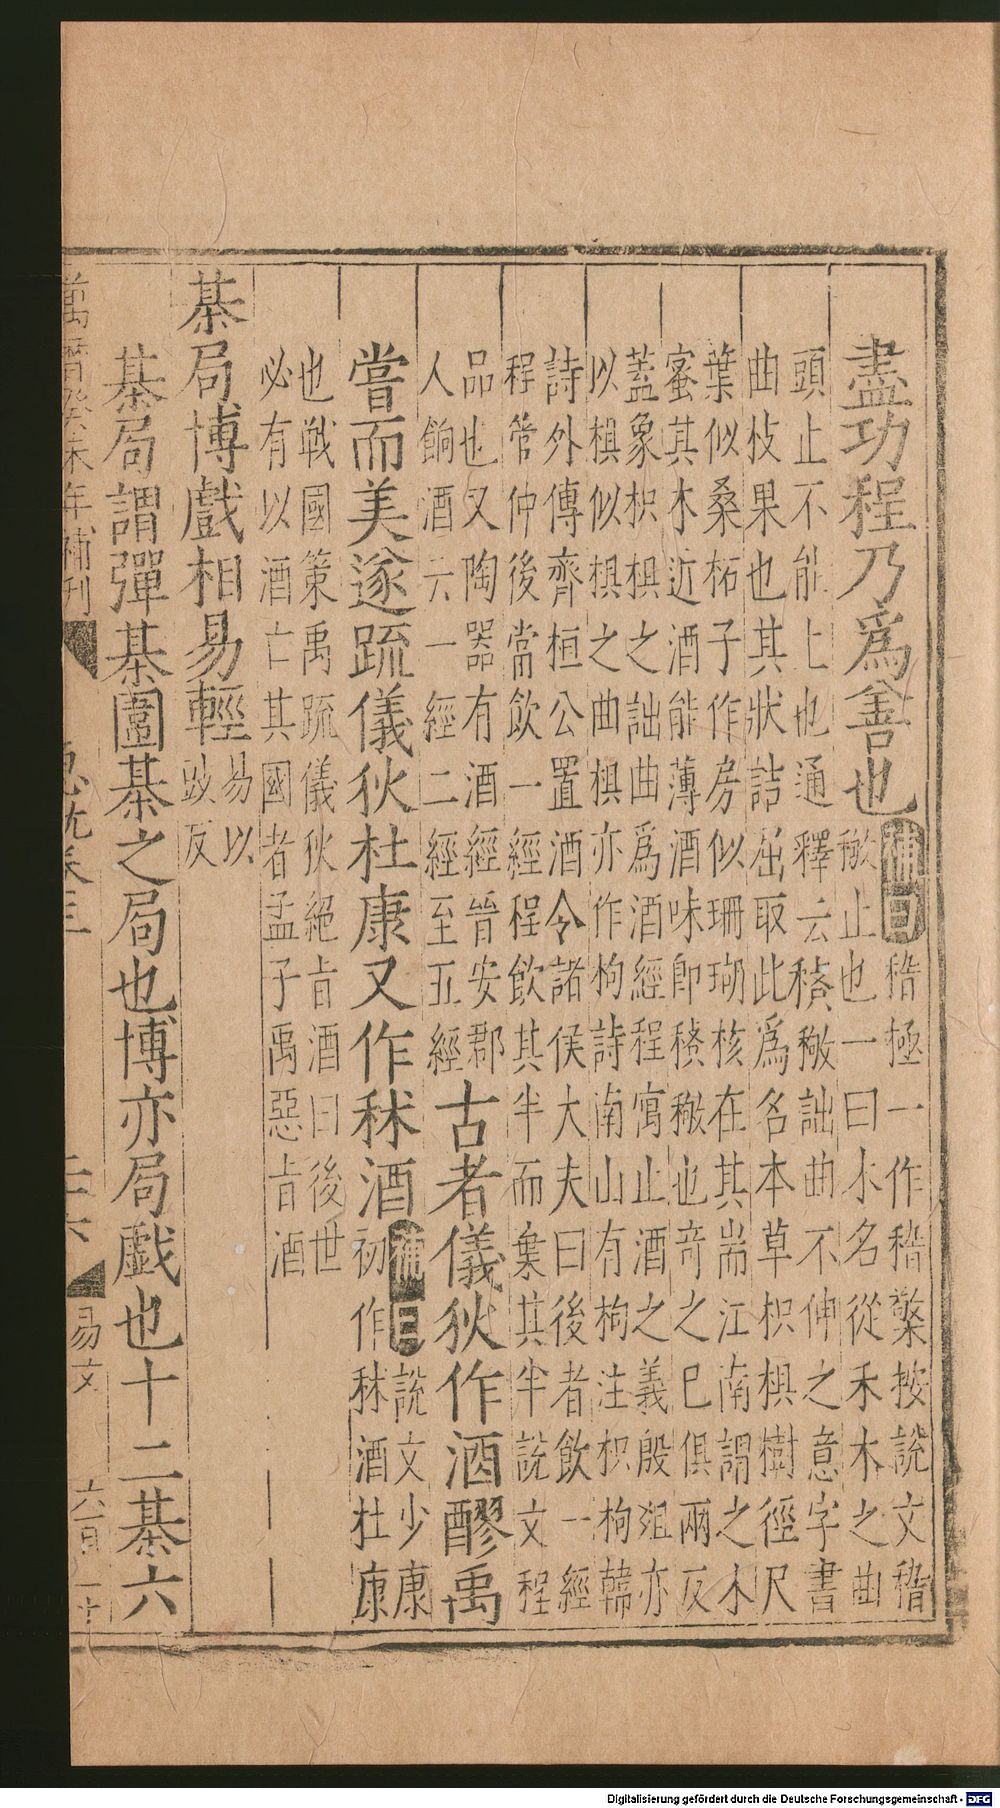 盡功程乃爲善也補曰稽極一作䅲檠按說文䅲
𥡴止也一曰木名從禾木之曲
頭止不能上也通釋云𥡴䅩詘曲不伸之意字書
曲枝果也其狀詰屈取此爲名本草枳椇樹徑尺
葉似桑柘子作房似珊瑚核在其耑江南謂之木
蜜其木近酒能薄酒味卽𥡴䅩也竒之巳俱兩反
蓋象枳椇之詘曲爲酒經程寓止酒之義殷俎亦
以椇似椇之曲椇亦作枸詩南山有枸注枳枸韓
詩外傳齊桓公置酒令諸侯大夫曰後者飲一經
程管仲後當飲一經程飲其半而棄其半說文程
品也又陶器有酒經晉安郡
人餉酒云一經二經至五經
古者儀狄作酒醪禹
嘗而美遂疏儀狄杜康又作秫酒補曰說文少康
初作秫酒杜康
也戰國策禹疏儀狄絕旨酒曰後世
必有以酒亡其國者孟子禹惡旨酒
棊局博戲相易輕易以
豉反
棊局謂彈棊圍棊之局也博亦局戲也十二棊六
萬曆癸未年補刊 卷三 易文 六百一十
Digitalisierung gefördert durch die Deutsche Forschungsgemeinschaft - DFG